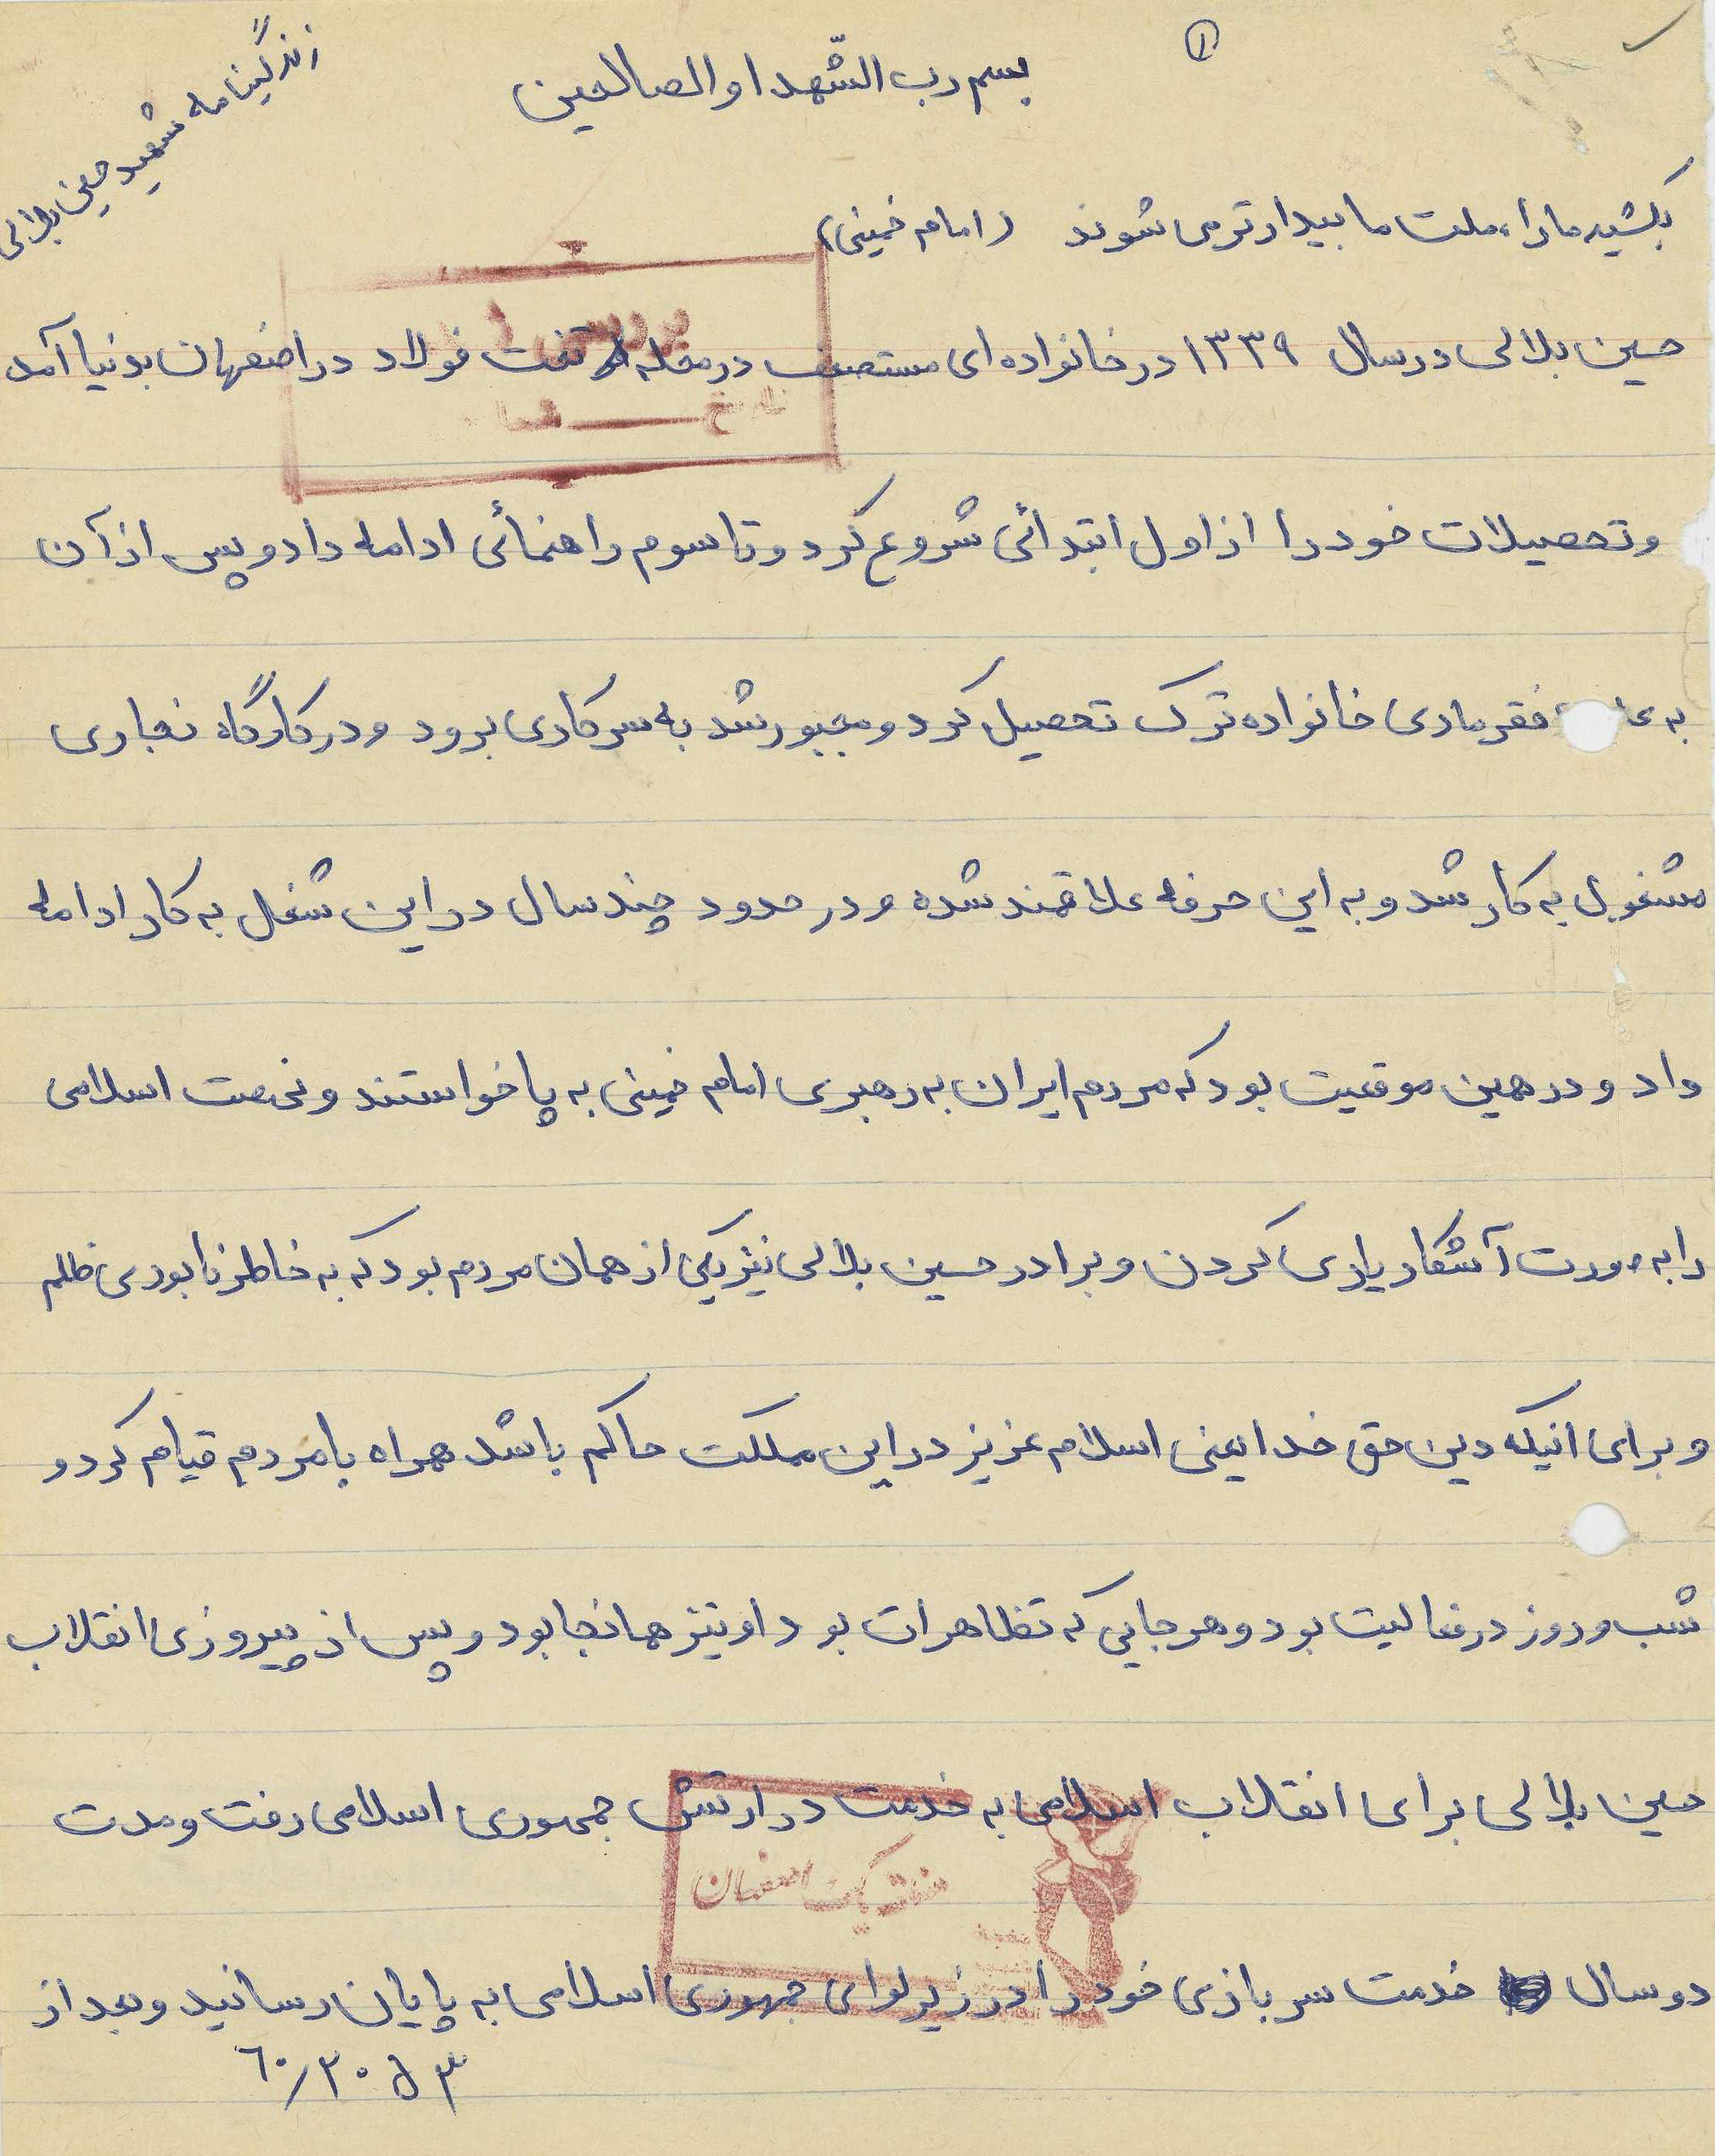 ①
بسم رب الشّهدا و الصالحین
زندگینامه شهید حسین بلالی
بکشید ما را، ملت ما بیدارتر می شوند (امام خمینی)
حسین بلالی در سال ۱۳۳۹ در خانواده ای مستضعف در محله تخت فولاد در اصفهان بدنیا آمد
و تحصیلات خود را از اول ابتدائی شروع کرد و تا سوم راهنمائی ادامه داد و پس از آن
به فقر مادی خانواده ترک تحصیل کرد و مجبور شد به سر کاری برود و در کارگاه نجاری
مشغول به کار شد و به این حرفه علاقمند شده و در حدود چند سال در این شغل به کار ادامه
داد و در همین موقعیت بود که مردم ایران به رهبری امام خمینی به پا خواستند و نهضت اسلامی
را به صورت آشکار یاری کردن و برادر حسین بلالی نیز یکی از همان مردم بود که به خاطر نابودی ظلم
و برای اینکه دین حق خدا یعنی اسلام عزیز در این مملکت حاکم باشد همراه با مردم قیام کرد و
شب و روز در فعالیت بود و هر جایی که تظاهرات بود او نیز همانجا بود و پس از پیروزی انقلاب
حسین بلالی برای انقلاب اسلامی به خدمت در ارتش جمهوری اسلامی رفت و مدت
اصفهان
دو سال خدمت سربازی خود را در زیر لوای جمهوری اسلامی به پایان رسانید و بعد از